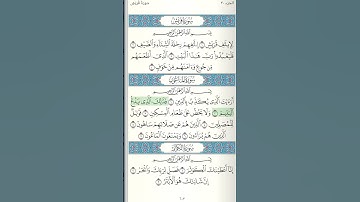 سورة قريش
بسم الله الرحمن الرحيم
لإيلف قريش ١ إلفهم رحلة الشتاء والصيف ٢
فليعبدوا رب هذا البيت ٣ الذي أطعمهم
من جوع وءامنهم من خوف ٤
سورة الماعون
بسم الله الرحمن الرحيم
أرءيت الذي يكذب بالدين ١ فذلك الذي يدع
اليتيم ٢ ولا يحض على طعام المسكين ٣ فويل
للمصلين ٤ الذين هم عن صلاتهم ساهون ٥
الذين هم يراءون ٦ ويمنعون الماعون ٧
سورة الكوثر
بسم الله الرحمن الرحيم
إنا أعطينك الكوثر ١ فصل لربك وانحر ٢
إن شانئك هو الأبتر ٣